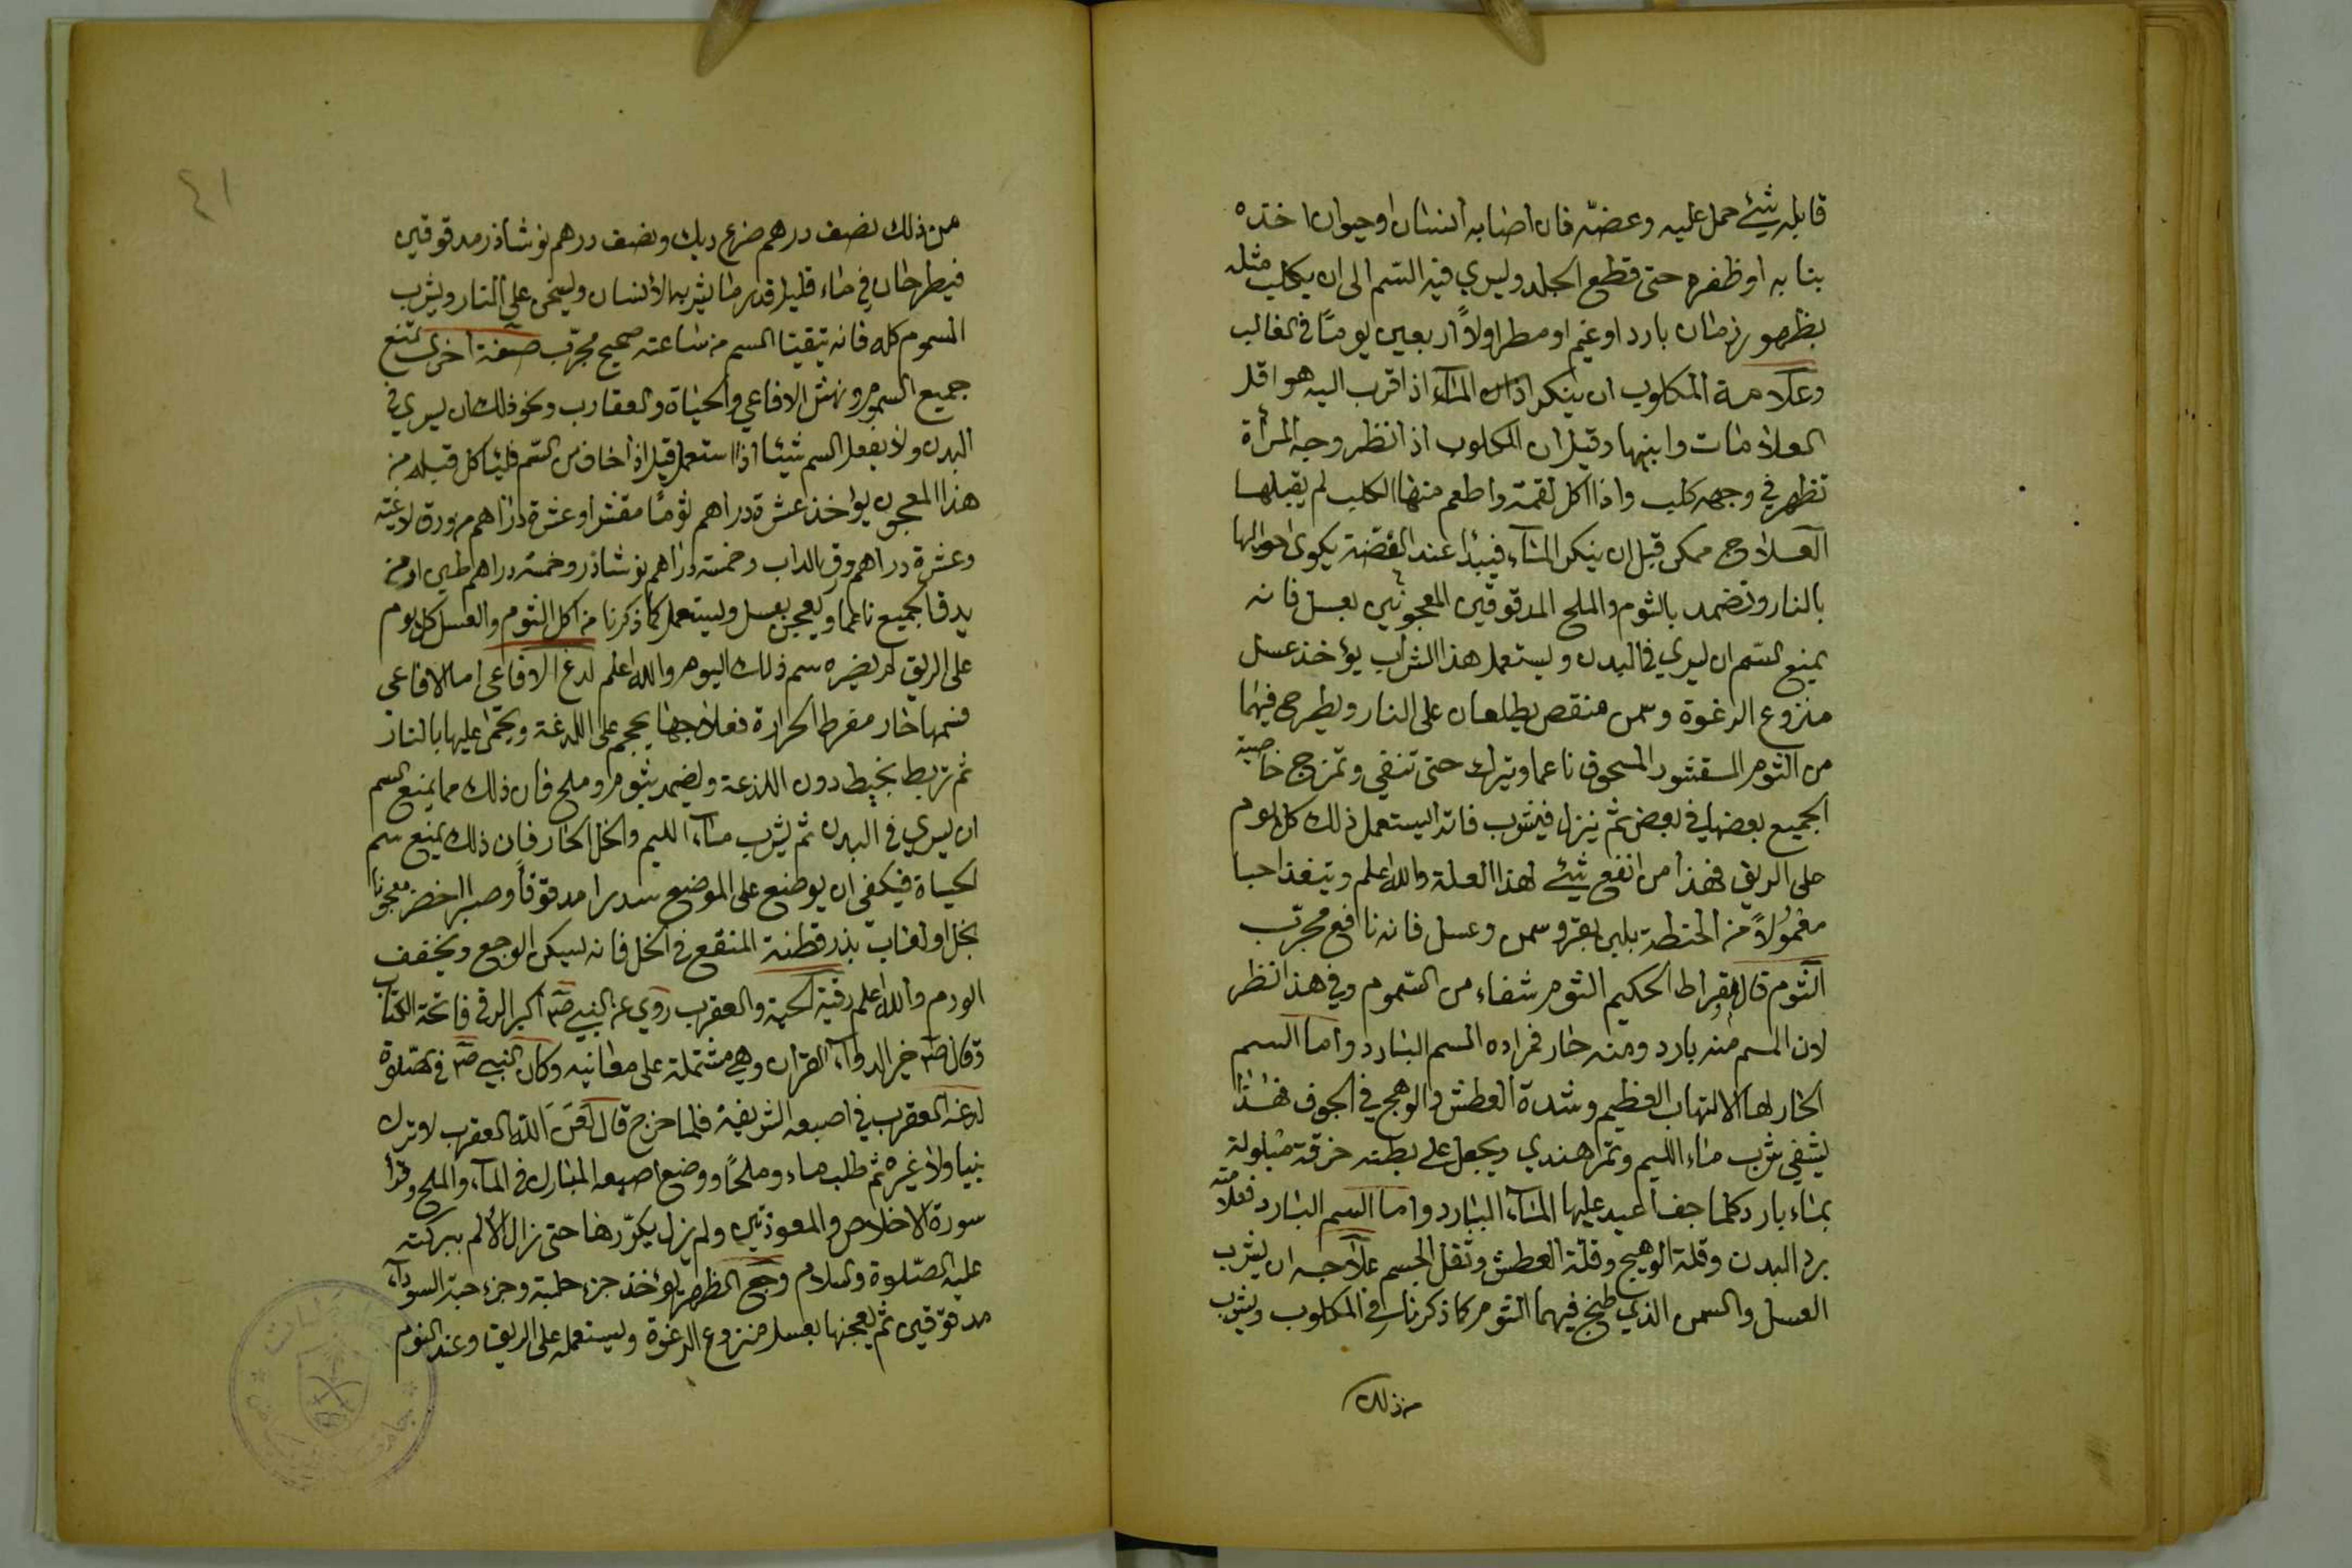 قابله شيئ حمل عليه وعضّه فان اصابه انسان او حيوان اخذه
بنا به او ظفره حتى قطع الجلد وليسري فيه السّم الى ان يكلب مثله
بظهور زمان بارد او غيم او مطر اولاً اربعين يومًا في الغالب
وعلامة المكلوب ان ينكر اذا المآء اذا قرب اليه هو اقل
العلامات وابينها وقيل ان المكلوب اذا نظر وجه المرأة
تظهر في وجهه كلب واذا اكل لقمة واطعم منها الكلب لم يقبلها
العلاج ممكن قبل ان ينكر المآء فيبدأ عند العضة يكوى حواليها
بالنار وتضمد بالثوم والملح المدقوقين المعجونين بعسل فانه
يمنع السّم ان ليسري في البدن وليستعمل هذا الشراب يؤخذ عسل
منزوع الرغوة وسمن منقص يطلعان على النار ويطرح فيهما
من الثوم المقشور المسحوق ناعما ويترك حتى تنقي وتمزج خاصية
الجميع بعضها في بعض ثم ينزل فيشرب فاترا ليستعمل ذلك كل يوم
على الريق فهذا من انفع شيئ لهذا العلة والله اعلم ويتغذا حبا
معمولاً من الحنطة بلبن بقر وسمن وعسل فانه نافع مجرّب
الثوم قال بقراط الحكيم الثوم شفاء من السّموم وفي هذا نظر
لان السم منه بارد ومنه حار فمراده السم البارد واما السم
الحار لها الالتهاب العظيم وشدة العطش والوهج في الجوف فهذا
ليشفي شرب ماء الليم وتمر هندي ويجعل على بطنه خرقة مبلولة
بماء بارد كلما جف اعيد عليها المآء البارد واما السم البارد فعلامته
برد البدن وقلة الوهيج وقلة العطش وثقل الجسم علاجه ان ليشرب
العسل والسمن الذي طبخ فيهما الثوم كما ذكرنا في المكلوب ويشرب
من ذلك
٤١
من ذلك نصف درهم ضرع ديك ونصف درهم نوشاذر مدقوقين
فيطرحان في ماء قليل قدر ما يشربه الأنسان وليسخن على النار ويشرب
المسموم كله فانه يتقيّا السم من ساعته صحيح مجرّب صفة اخرى تمنع
جميع السموم ونهش الافاعي والحياة والعقارب ونحو ذلك ان ليسري في
البدن ولا يفعل السم شيئا اذا استعمل قيل اذا خاف من السّم فلياكل قبله من
هذا المعجون يؤاخذ عشرة دراهم ثومًا مقشرا وعشرة دراهم
وعشرة دراهم ورق الداب وخمسة دراهم نوشاذر وخمسة دراهم طين ارمن
يدق الجميع ناعما ويعجن بعسل وليستعمل كما ذكرنا من اكل الثوم والعسل كل يوم
على الريق لم يضيره سم ذلك اليوم والله اعلم لدغ الافاعي اما الافاعي
فسمها حار مفرط الحرارة فعلاجها يحجم على اللدغة ويحمى عليها بالنار
ثم تربط بخيط دون اللذعة ويضمد بثوم وملح فان ذلك مما يمنع السم
ان ليسري في البدن ثم يشرب مآء الليم والخل الحار فان ذلك يمنع سم
الحياة فيكفي ان يوضع على الموضع سدرا مدقوقاً وصبر اخضر معجونا
بخل او لعاب بذر قطنة المنقع في الخل فانه ليسكن الوجع ويخفف
الورم والله اعلم رقية الحية والعقرب روي عن النبي صم اكبر الرقى فاتحة الكتاب
وقال صم خير الدوآء القرآن وهي مشتملة على معانيه وكان النبي صم في الصّلوة
لدغه العقرب في اصبعه الشريفة فلما خرج قال لَعَنَ الله العقرب لا ترك
نبيا ولا غيره ثم طلب ماء وملحًا ووضع اصبعه المبارك في المآء والملح وقرأ
سورة الاخلاص والمعوذتين ولم يزل يكرّرها حتى زال الألم ببركته
عليه الصّلوة والسلام وجع الظهر يؤخذ جزء حلبة وجزء حبّة السودآء
مدقوقين ثم يعجنها بعسل منزوع الرغوة وليستعمله على الريق وعند النوم